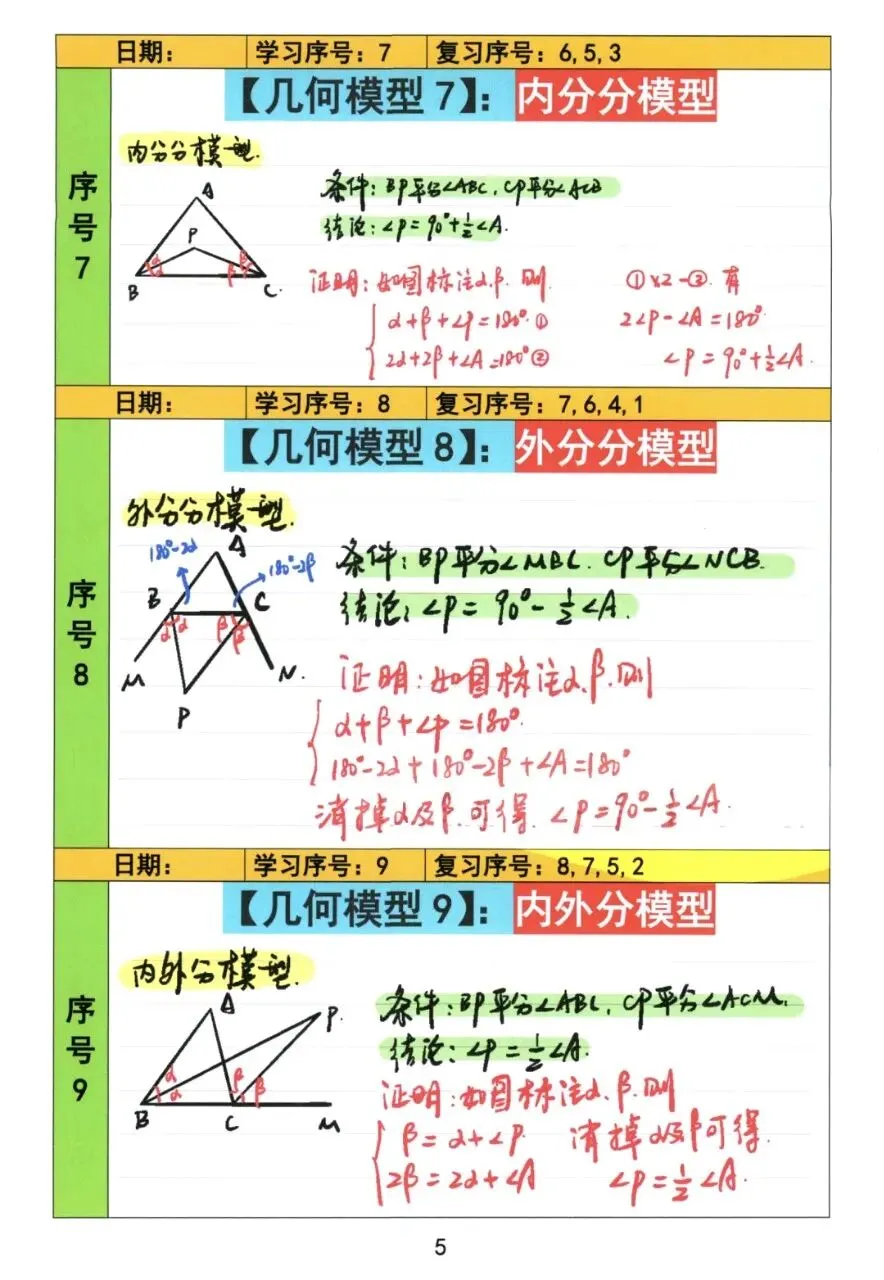 日期： 学习序号：7 复习序号：6,5,3
序号7
【几何模型7】：内分分模型
内分分模型.
A
P
B C
α α β β
条件：BP平分∠ABC，CP平分∠ACB
结论：∠P=90°+½∠A.
证明：如图标注α.β.则
α+β+∠P=180° ①
2α+2β+∠A=180° ②
①×2-②.有
2∠P-∠A=180°
∠P=90°+½∠A.
日期： 学习序号：8 复习序号：7,6,4,1
序号8
【几何模型8】：外分分模型
外分分模型.
180°-2α A 180°-2β
B C
α α β β
M N.
P
条件：BP平分∠MBC.CP平分∠NCB.
结论：∠P=90°-½∠A.
证明：如图标注α.β.则
α+β+∠P=180°.
180°-2α+180°-2β+∠A=180°
消掉α及β.可得.∠P=90°-½∠A.
日期： 学习序号：9 复习序号：8,7,5,2
序号9
【几何模型9】：内外分模型
内外分模型.
A P.
α α β β
B C M
条件：BP平分∠ABC，CP平分∠ACM.
结论：∠P=½∠A.
证明：如图标注α.β.则
β=α+∠P.
2β=2α+∠A
消掉α及β可得.
∠P=½∠A.
5